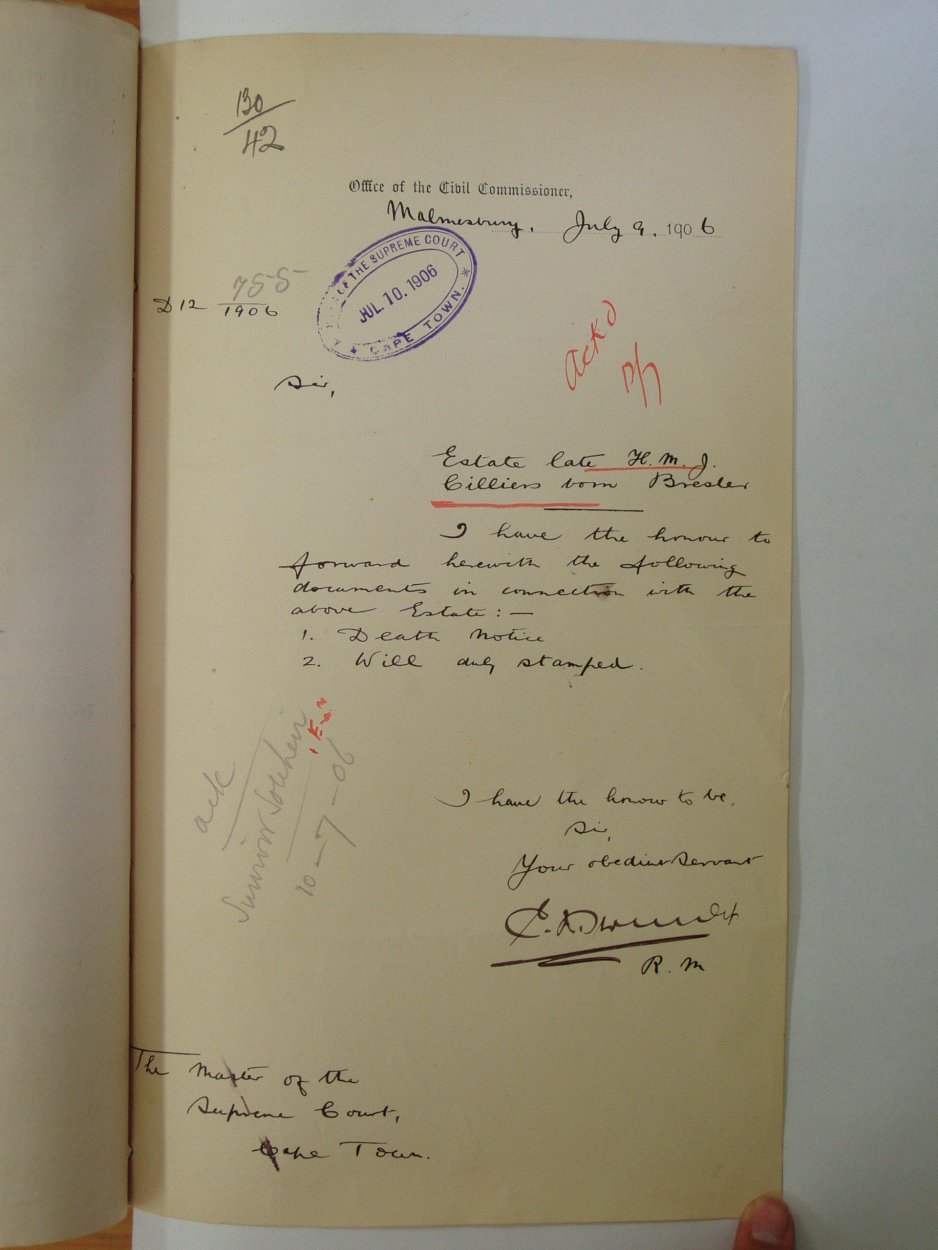 130
42
Office of the Civil Commissioner,
Malmesbury, July 9. 1906
D12 755
1906
OF THE SUPREME COURT
JUL. 10. 1906
CAPE TOWN.
Ackd
Sir,
Estate late H. M. J.
Cilliers born Bresler
I have the honour to
forward herewith the following
documents in connection with the
above Estate:—
1. Death Notice
2. Will duly stamped.
ack
Survivor
10-7-06
I have the honour to be,
Sir,
Your obedient Servant
R. M
The Master of the
Supreme Court,
Cape Town.